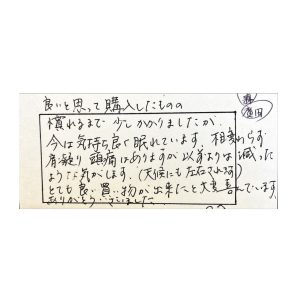 良いと思って購入したものの
慣れるまで少しかかりましたが、
今は気持ち良く眠れています。相変わらず
肩凝り頭痛はありますが以前よりは減った
ような気がします。(天候にも左右されます)
とても良い買い物が出来たと大変喜んでいます。
ありがとうございました